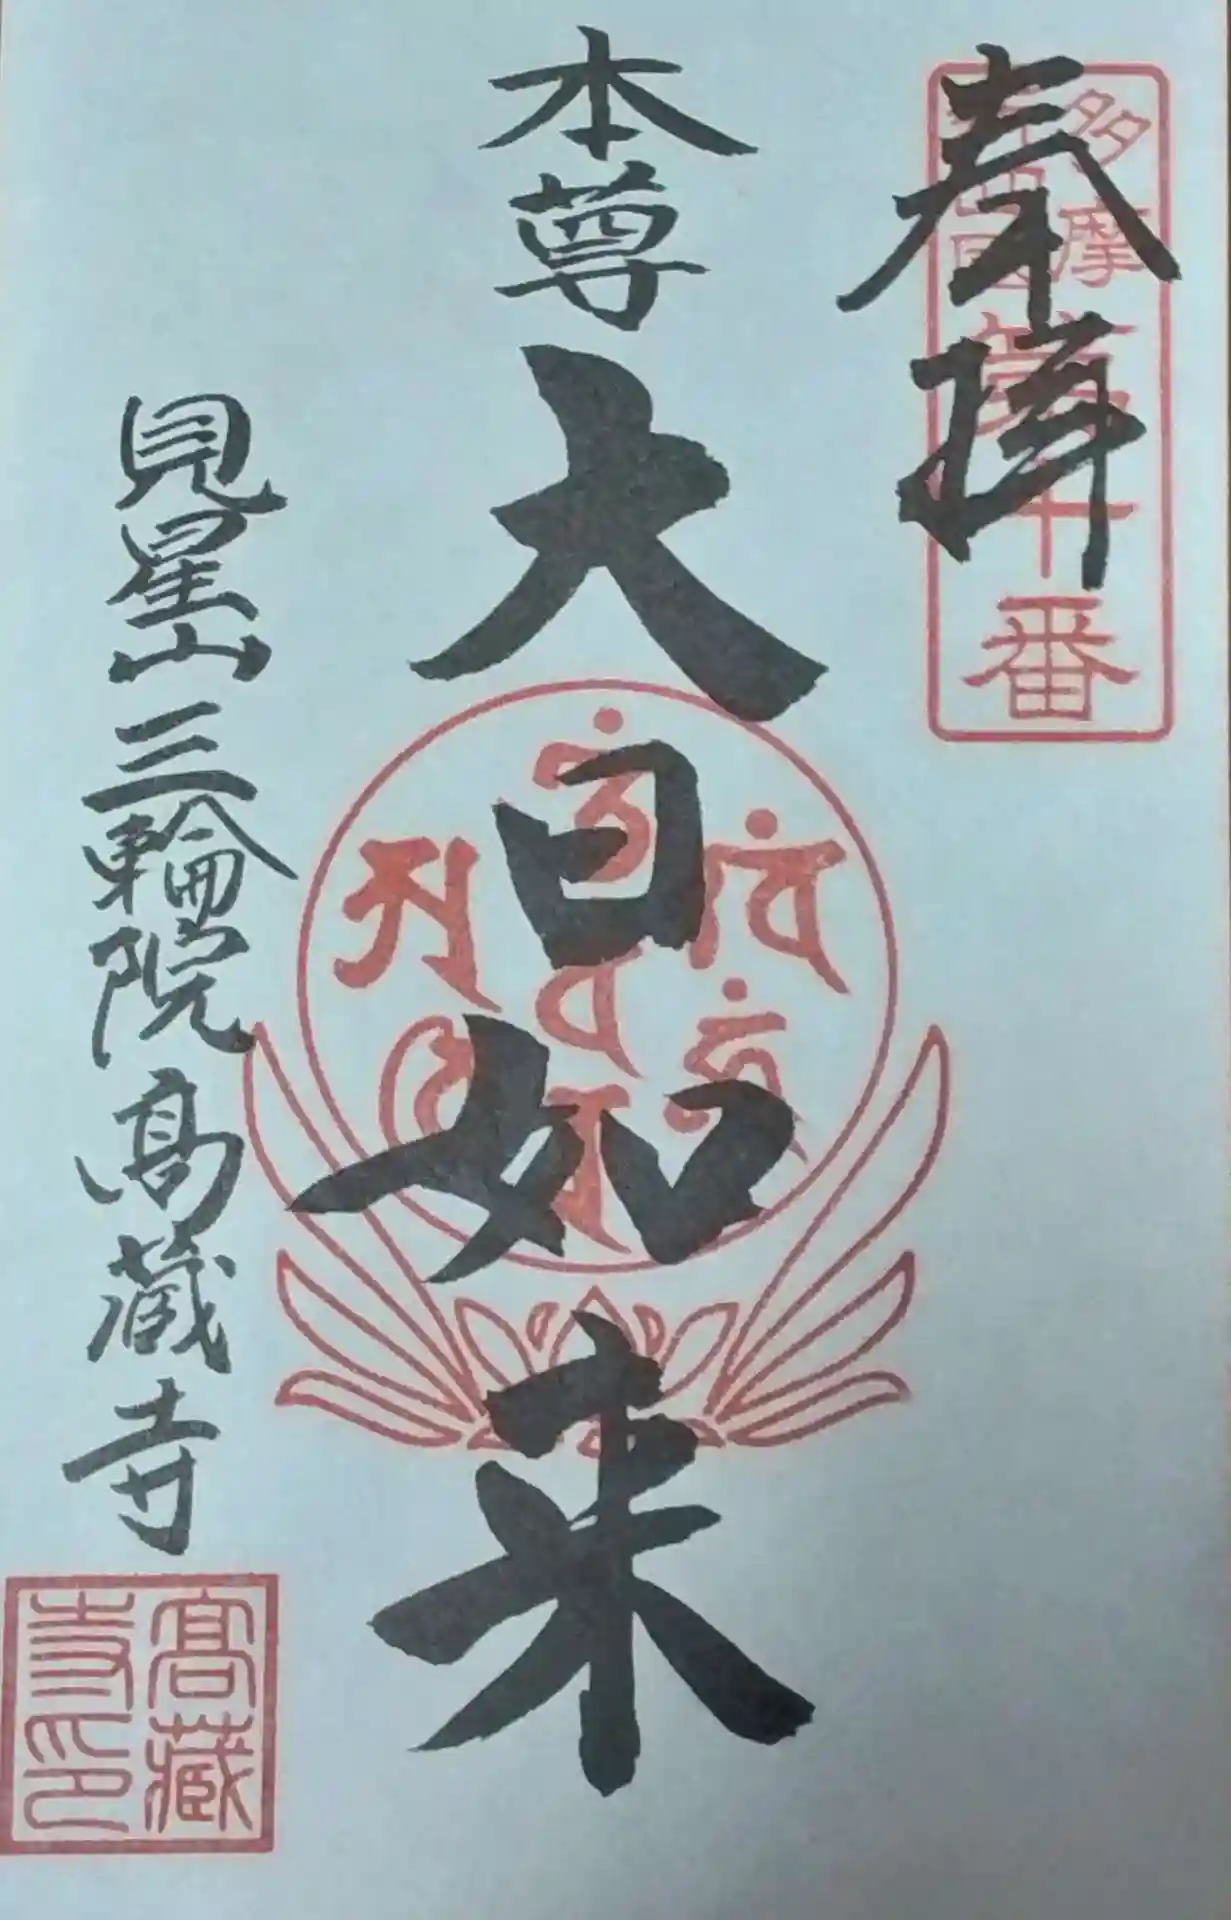 奉拝
多摩
四国
第十番
本尊
大日如来
見星山三輪院高蔵寺
高蔵
寺印